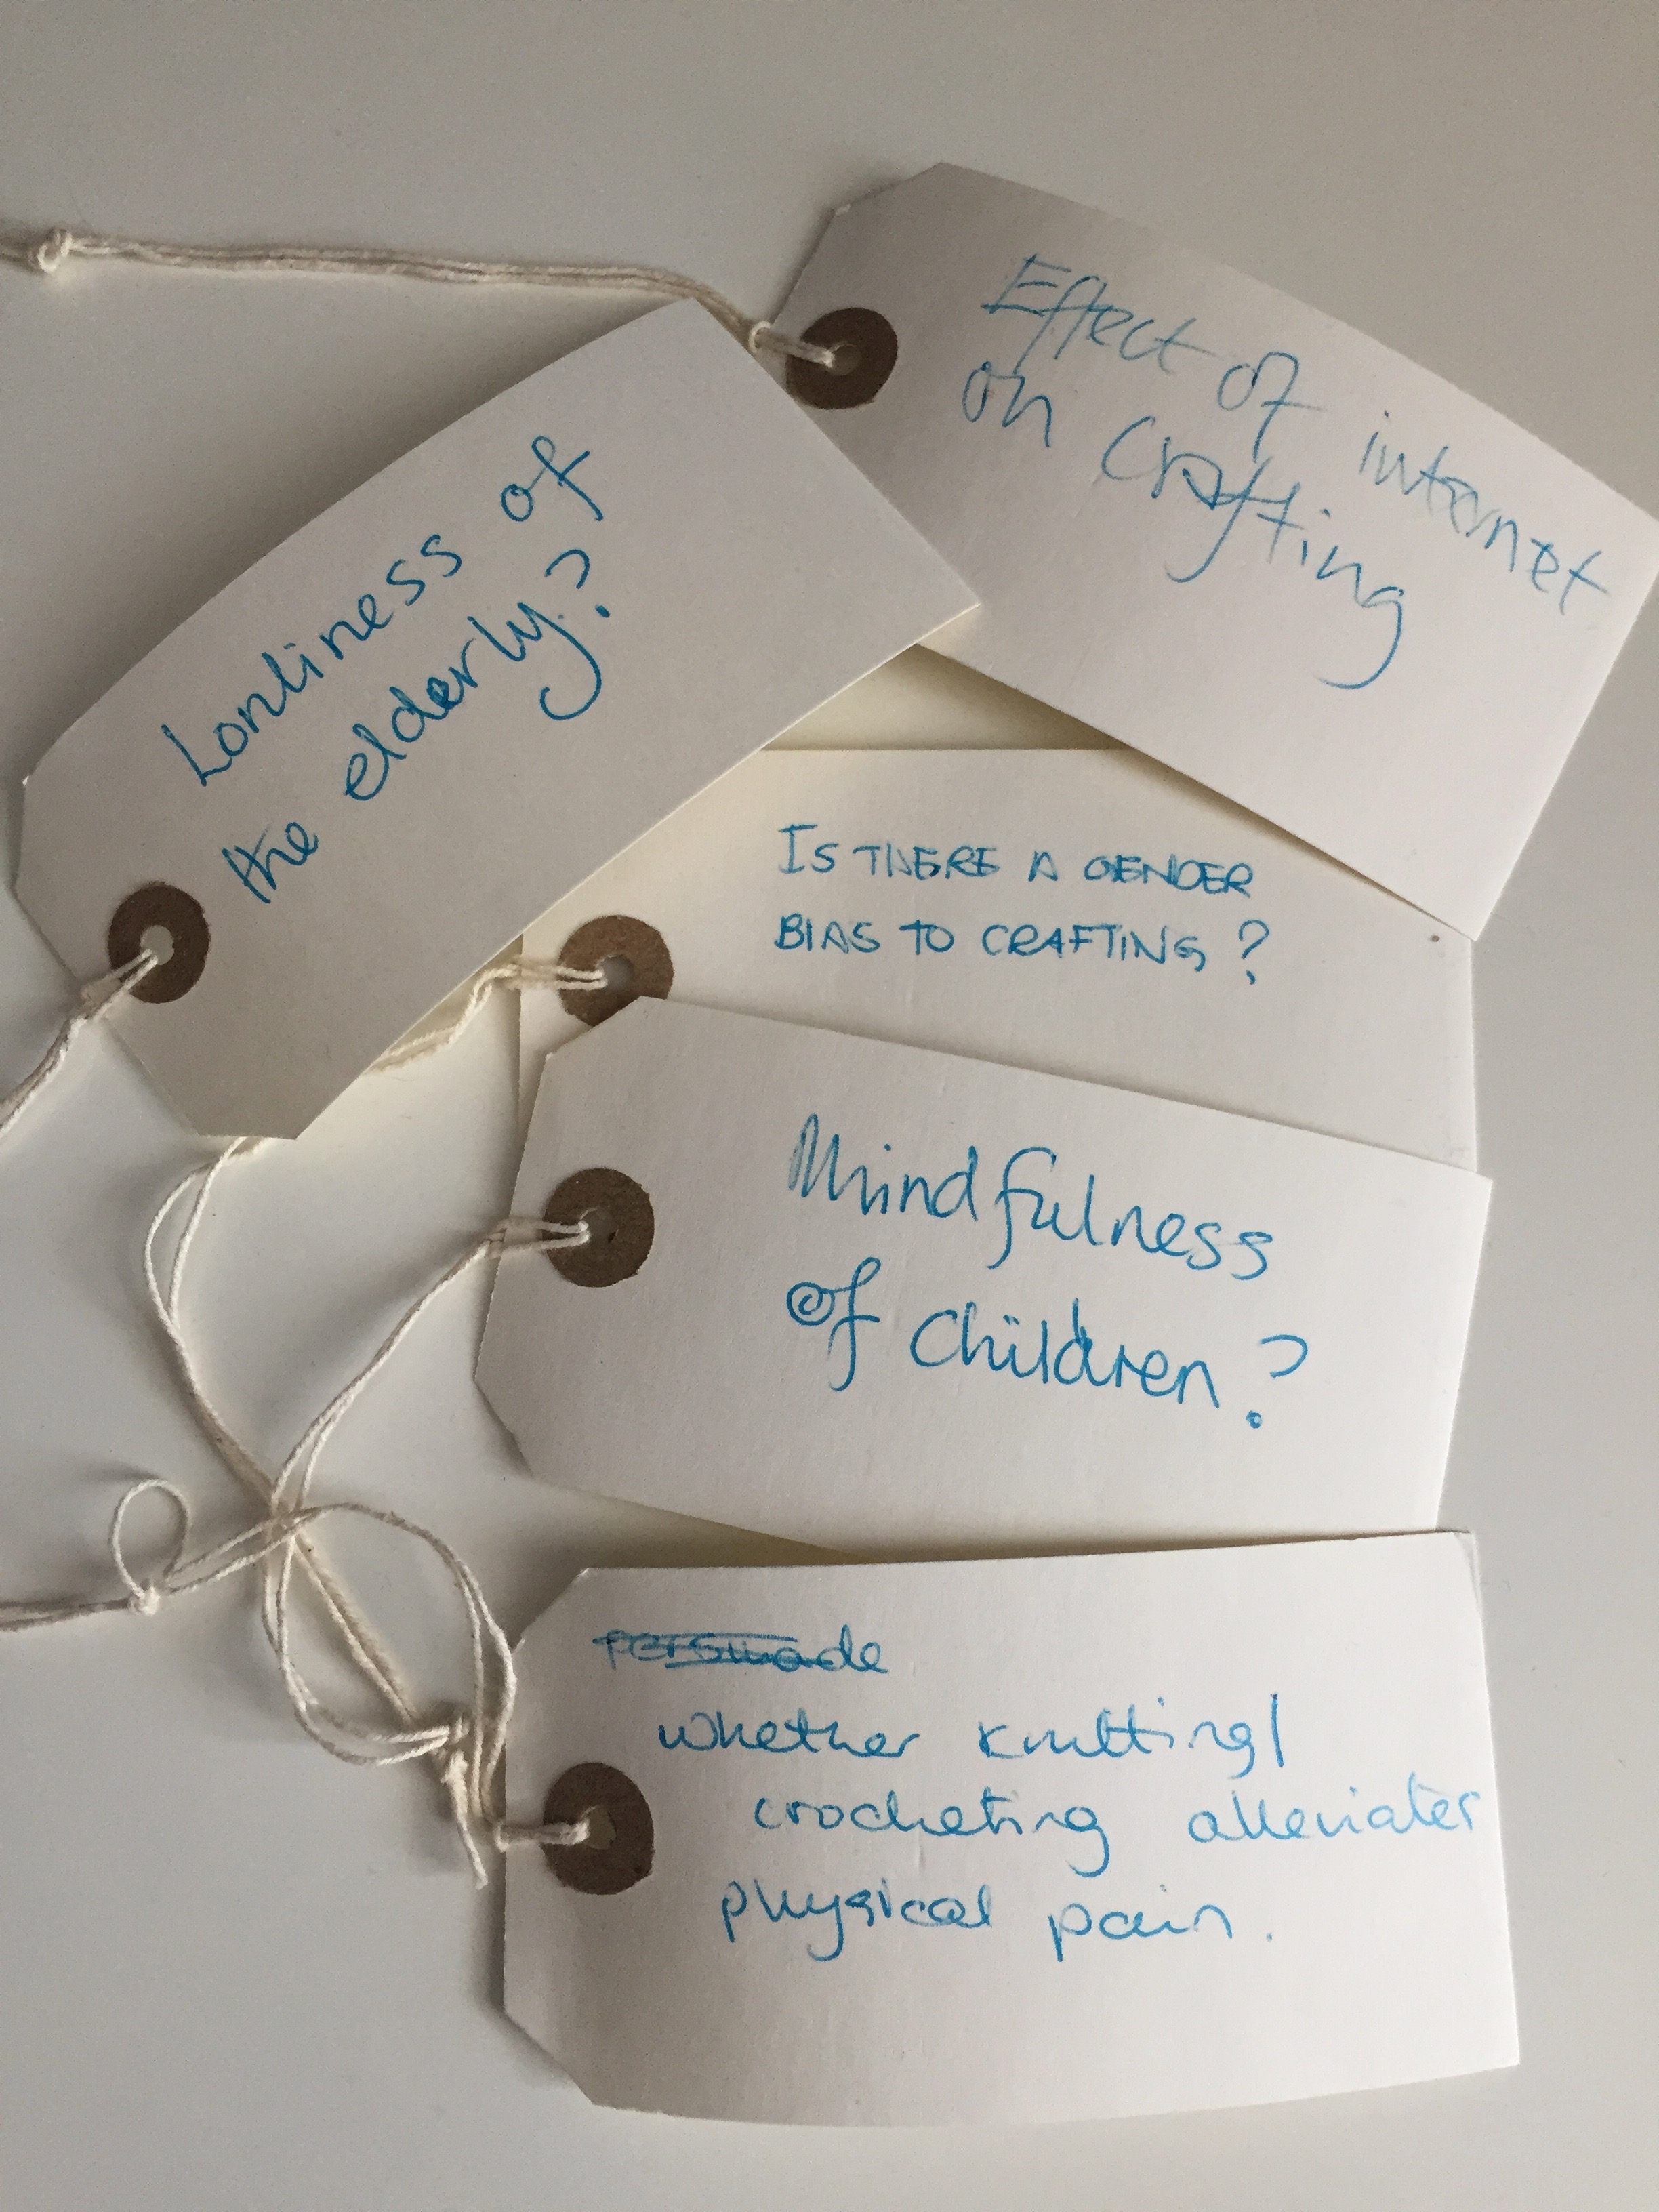 Effect of internet
on crafting
Lonliness of
the elderly?
IS THERE A GENDER
BIAS TO CRAFTING?
Mindfulness
of Children?
persuade
whether knitting/
crocheting alleviates
physical pain.